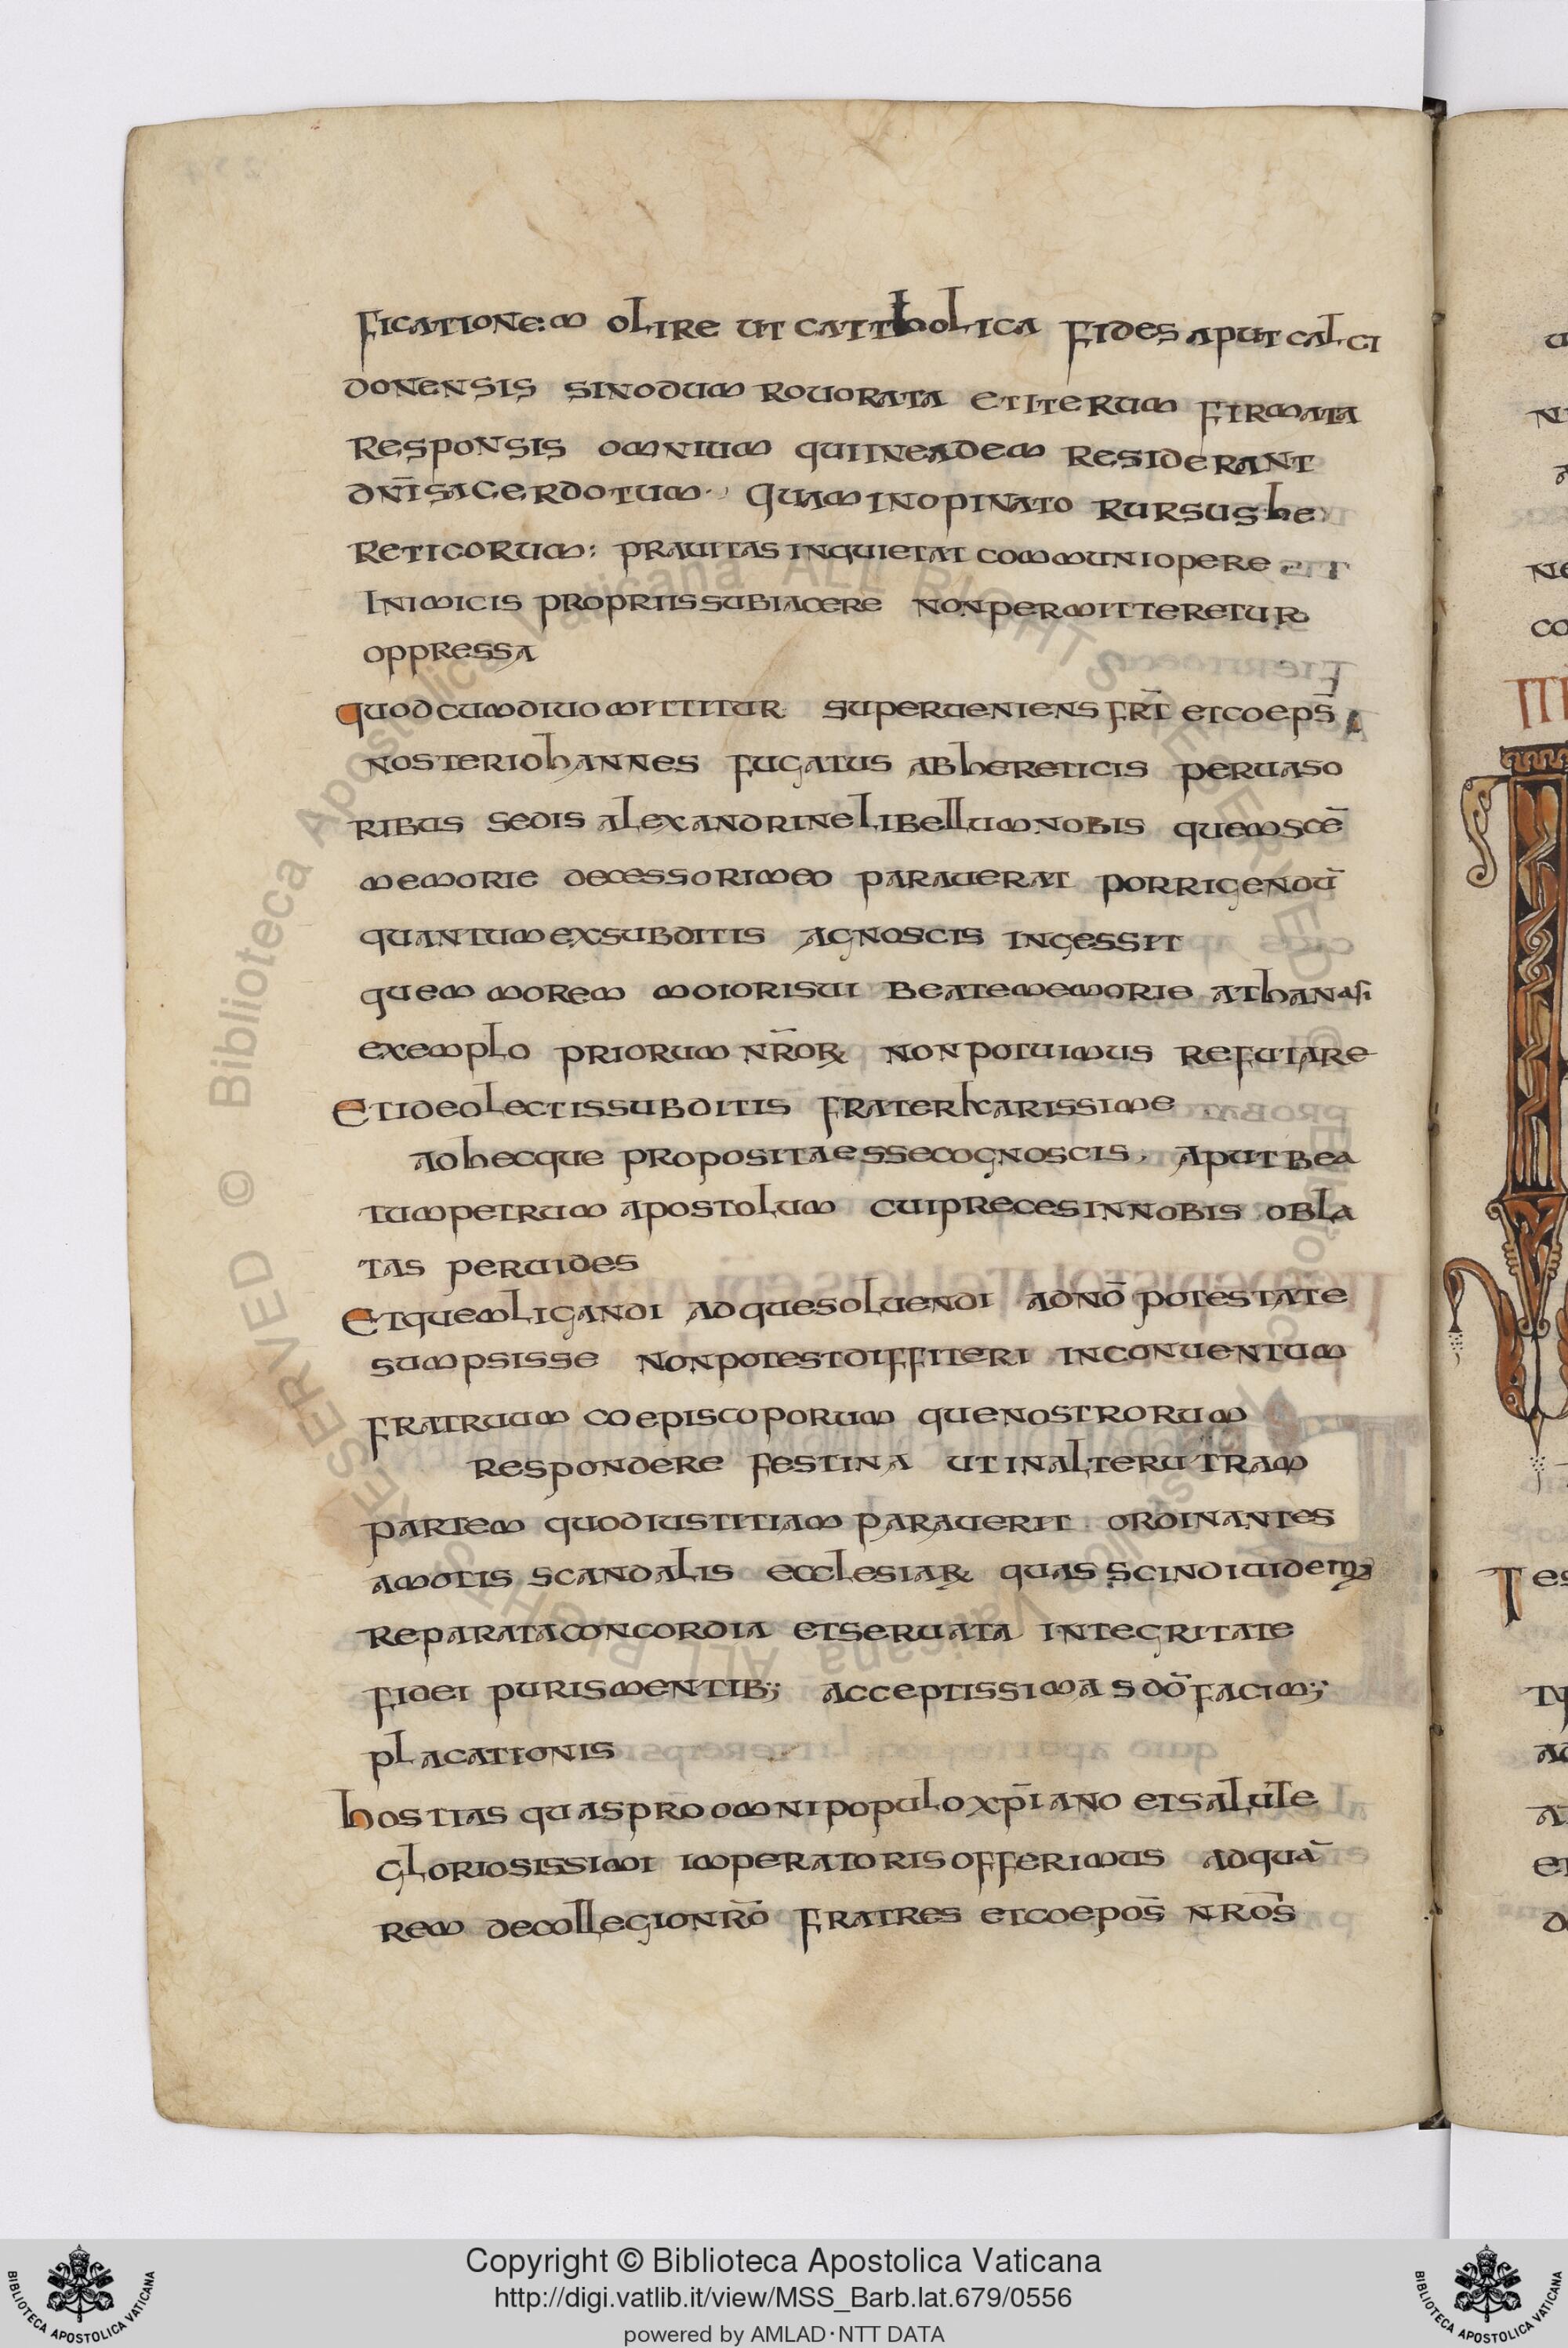 ficationem olire ut cattholica fides aput calci
donensis sinodum rouorata et iterum firmata
responsis omnium qui in eadem residerant
dn̄i sacerdotum· quam inopinato rursus he
reticorum: prauitas inquietat communi opere
inimicis propriis subiacere non permitteretur
oppressa
quod cum diuo mittitur superueniens fr̄i et coeps̄
noster iohannes fugatus ab hereticis peruaso
ribus sedis alexandrine libellum nobis quem scē
memorie decessori meo parauerat porrigendū
quantum ex subditis agnoscis ingessit
quem morem moiori sui beate memorie athanasi
exemplo priorum nr̄oꝝ non potuimus refutare
et ideo lectis subditis frater karissime
ad hec que proposita esse cognoscis, aput bea
tum petrum apostolum cui preces in nobis obla
tas peruides
et quem ligandi adque soluendi a dn̄o potestate
sumpsisse non potest diffiteri in conuentum
fratruum coepiscoporum que nostrorum
respondere festina ut in alterutram
partem quod iustitiam parauerit ordinantes
amotis scandalis ecclesiaꝝ quas scindi uidemꝰ
reparata concordia et seruata integritate
fidei puris mentib; acceptissimas dō facim;
placationis
hostias quas pro omni populo xp̄iano et salute
gloriosissimi imperatoris offerimus ad quā
rem de collegio nr̄o fratres et coepos̄ nr̄os
Copyright © Biblioteca Apostolica Vaticana
http://digi.vatlib.it/view/MSS_Barb.lat.679/0556
powered by AMLAD·NTT DATA